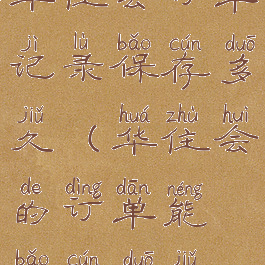 jì lù bǎo cún duō
记录保存多
jiǔ huá zhù huì
久（华住会
de dìng dān néng
的订单能
bǎo cún duō jiǔ